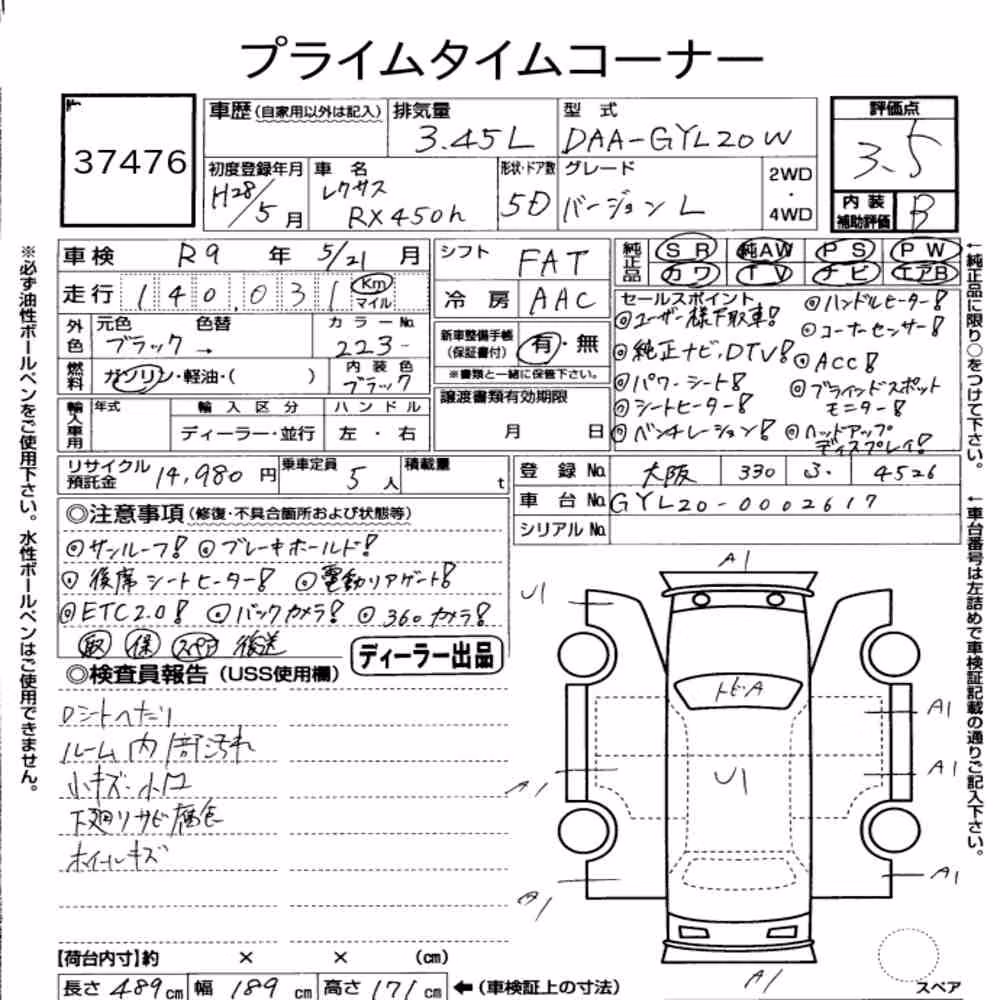 プライムタイムコーナー
37476
車歴(自家用以外は記入) 排気量 3.45L 型式 DAA-GYL20W 評価点 3.5
初度登録年月 H28/5月 車名 レクサス RX450h 形状・ドア数 5D グレード バージョンL 2WD・4WD
内装補助評価 B
車検 R9年 5/21月 シフト FAT 純正品 SR 純AW PS PW
カワ TV ナビ エアB
走行 140,031 Km マイル 冷房 AAC
外色 元色 ブラック → 色替 カラーNo. 223- 新車整備手帳(保証書付) 有・無
※書類と一緒に保管下さい。
燃料 ガソリン・軽油・( ) 内装色 ブラック
輸入車用 年式 輸入区分 ディーラー・並行 ハンドル 左・右 譲渡書類有効期限 月 日
セールスポイント
◎ユーザー様下取車!
◎純正ナビ、DTV!
◎パワーシート!
◎シートヒーター!
◎ベンチレーション!
◎ハンドルヒーター!
◎コーナーセンサー!
◎ACC!
◎ブラインドスポット
モニター!
◎ヘッドアップ
ディスプレイ!
リサイクル預託金 14,980円 乗車定員 5人 積載量 t
登録No. 大阪 330 ふ 4526
車台No. GYL20-0002617
シリアルNo.
◎注意事項(修復・不具合箇所および状態等)
◎サンルーフ! ◎ブレーキホールド!
◎後席シートヒーター! ◎電動リアゲート!
◎ETC2.0! ◎バックカメラ! ◎360カメラ!
取 保 スペア 後送
ディーラー出品
◎検査員報告(USS使用欄)
Dシートへたり
ルーム内部汚れ
小キズ・小凹
下廻りサビ腐食
ホイールキズ
【荷台内寸】約 × × (cm)
長さ 489cm 幅 189cm 高さ 171cm ←(車検証上の寸法)
A1
U1
トビA
A1
U1
A1
A1
A1
A1
A1
スペア
※必ず油性ボールペンをご使用下さい。水性ボールペンはご使用できません。
←純正品に限り○をつけて下さい。
←車台番号は左詰めで車検証記載の通りご記入下さい。